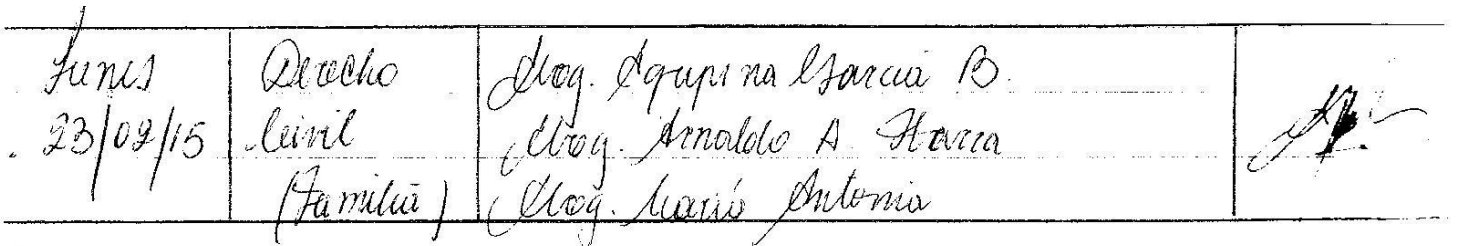 Lunes
23/02/15
Derecho
Civil
(Familia)
Abog. Agripina Garcia B.
Abog. Arnaldo A.
Abog. Maria Antonia